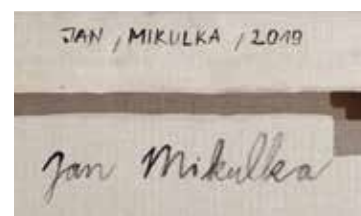 JAN , MIKULKA , 2019
Jan Mikulka